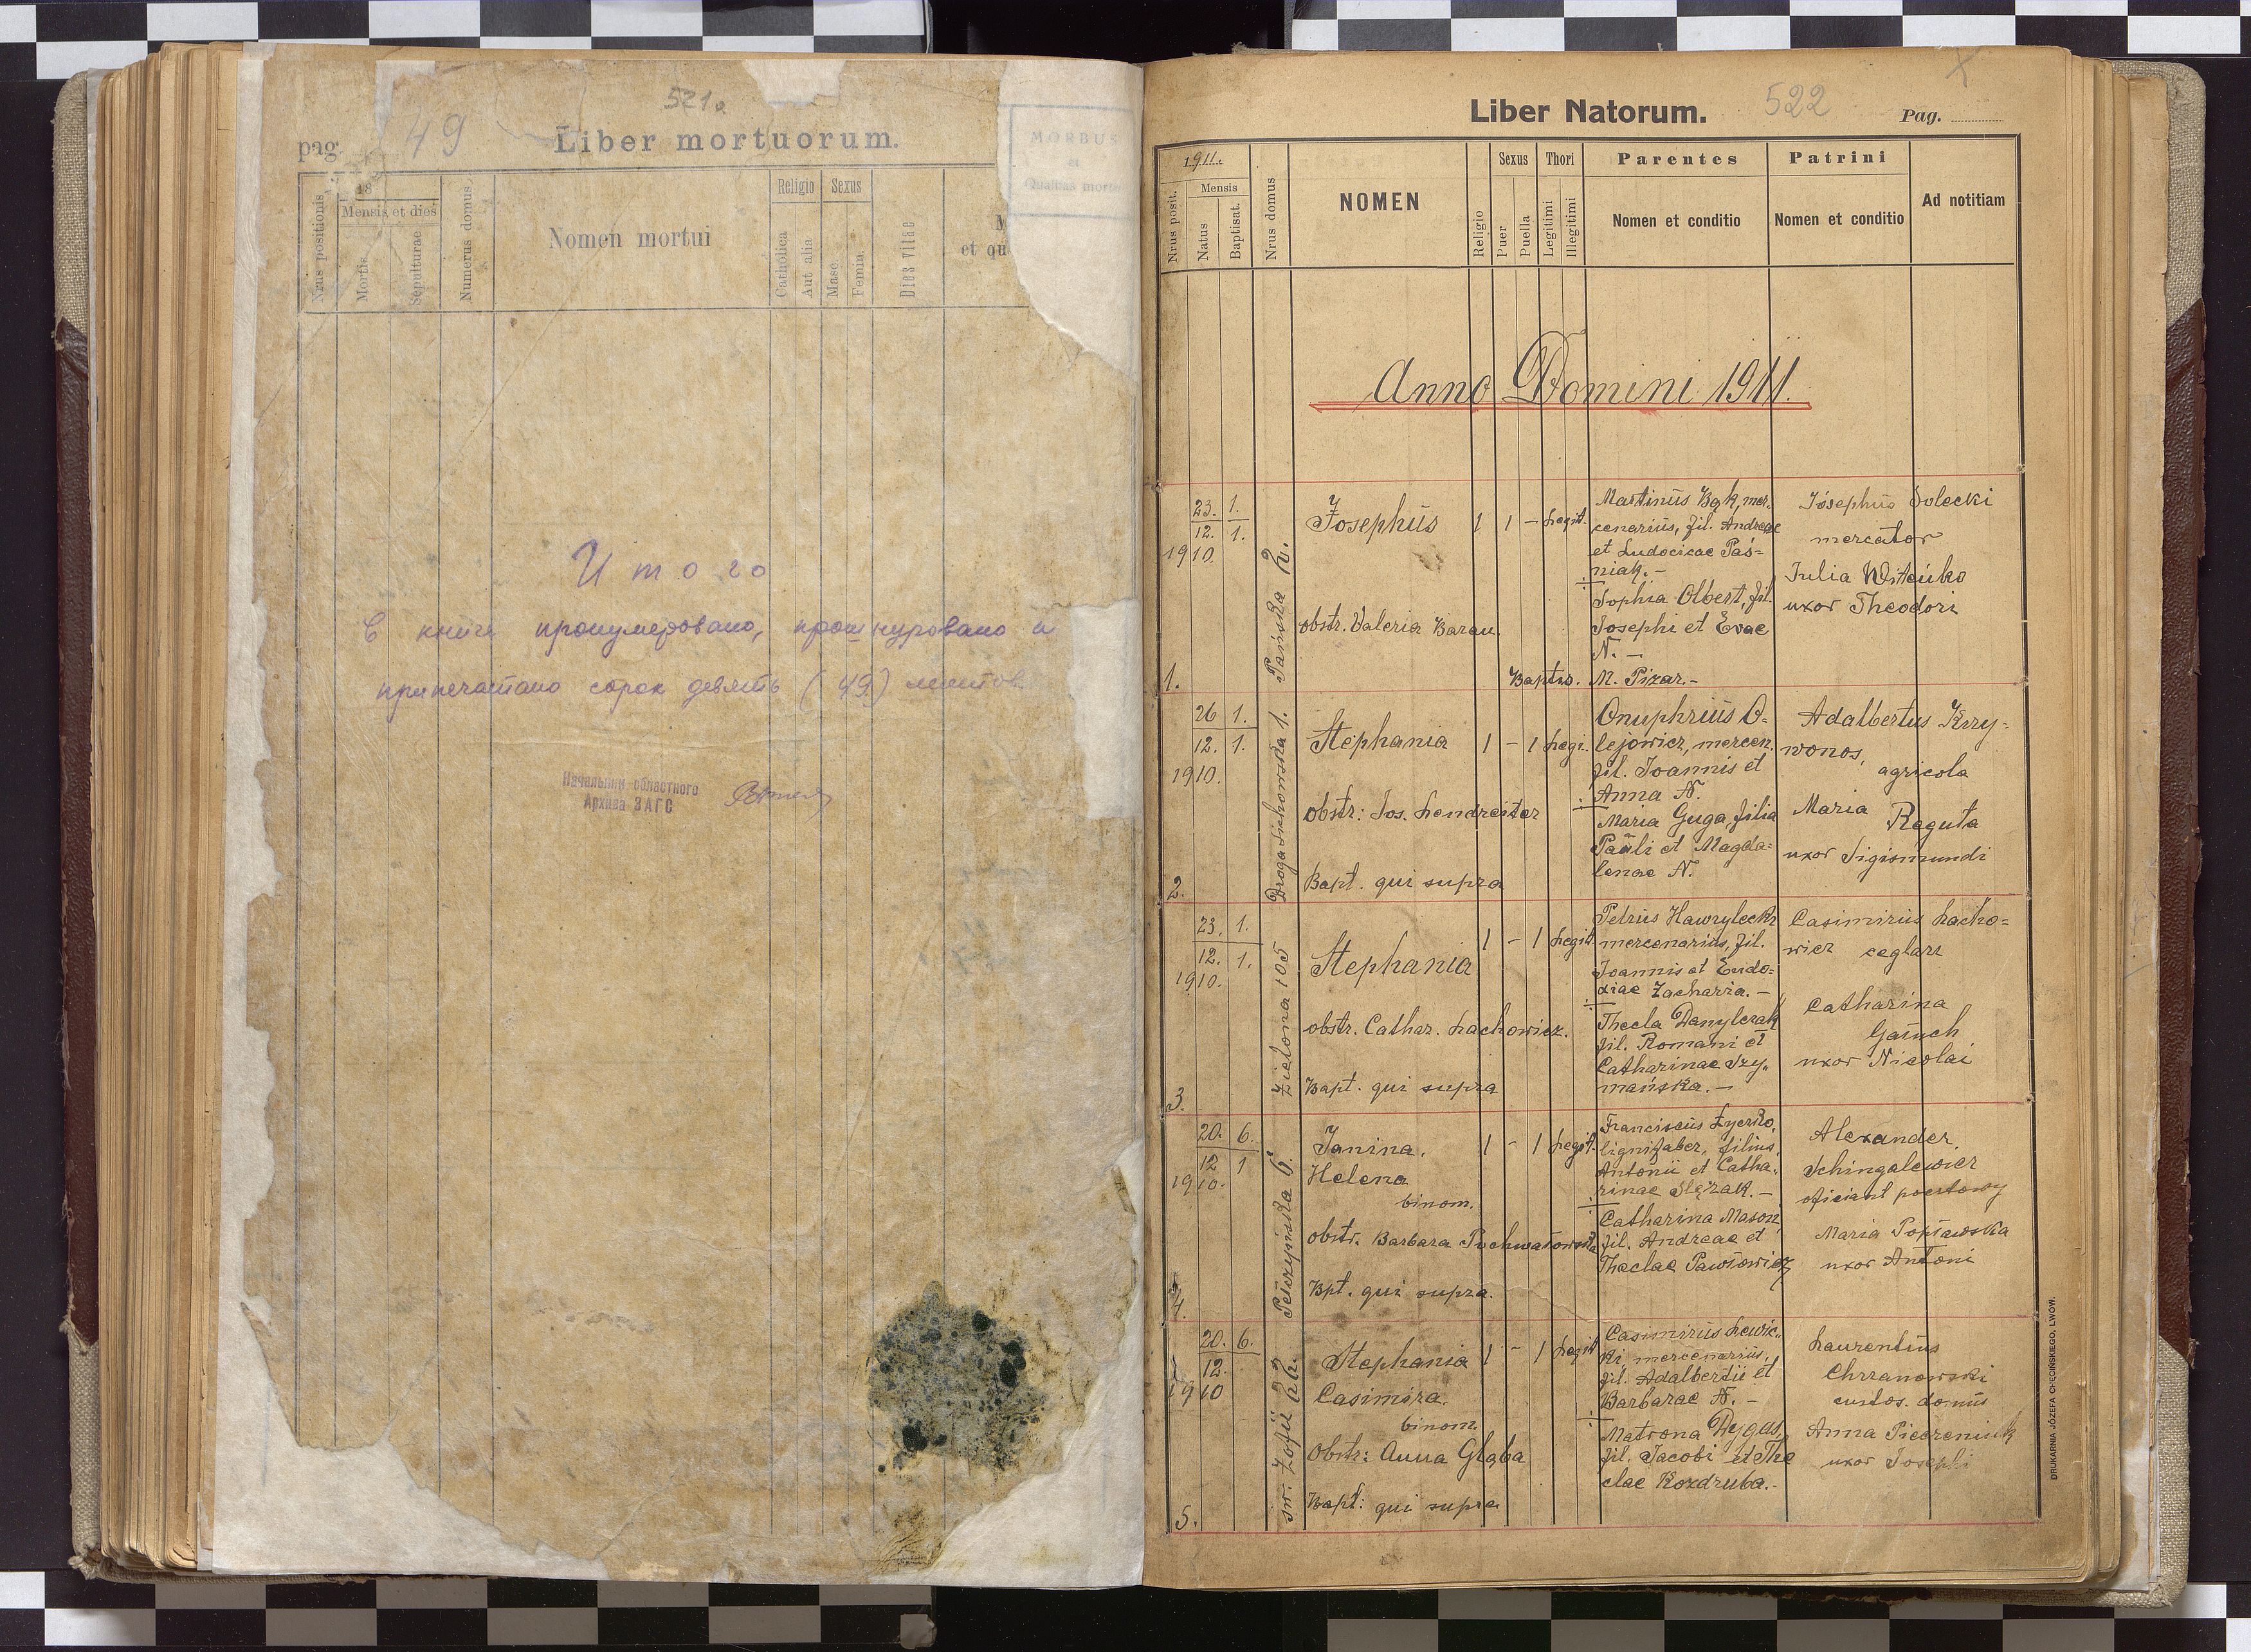 521a
49
pag.
Liber mortuorum.
MORBUS
et
Qualitas mortis
Nrus positionis
18
Mensis et dies
Mortis
Sepulturae
Numerus domus
Nomen mortui
Religio
Catholica
Aut alia
Sexus
Masc.
Femin.
Dies vitae
M
et qu
Итого
В книге пронумеровано, прошнуровано и
припечатано сорок девять (49) листов
Начальник областного
Архива ЗАГС
522
Liber Natorum.
Pag.
1911.
Nrus posit.
Mensis
Natus
Baptisat.
Nrus domus
NOMEN
Religio
Sexus
Puer
Puella
Thori
Legitimi
Illegitimi
Parentes
Nomen et conditio
Patrini
Nomen et conditio
Ad notitiam
Anno Domini 1911.
1.
23. 1.
12. 1.
1910
Pańska
Josephus
1 1 - Legit.
obstr. Valeria Baran.
Martinus Bąk, mer-
cenarius, fil. Andreae
et Ludovicae Paś=
niak. -
Sophia Olbert, fil.
Josephi et Evae
N. -
Baptis. M. Pizar. -
Josephus Solecki
mercator
Julia
uxor Theodori
2.
26 1.
12. 1.
1910.
Droga Sichowska 1.
Stephania
1 - 1 Legi.
obstr: Jos. Lendreiter
Bapt. qui supra
Onuphrius O-
lejowicz, mercen.
fil. Joannis et
Anna N.
Maria Guga, filia
Pauli et Magda=
lenae N.
Adalbertus Krzy=
wonos,
agricola
Maria
Reguta
uxor Sigismundi
3.
23. 1.
12. 1.
1910.
Zielona 105
Stephania
1 - 1 Legit.
obstr. Cathar. Lachowicz.
Bapt. qui supra
Petrus Hawrylecki
mercenarius, fil.
Joannis et Eudo=
xiae Zacharia. -
Thecla Danylczak
fil. Romani et
Catharinae Szy=
mańska. -
Casimirus Lacho=
wicz ceglarz
Catharina
uxor Nicolai
4.
20. 6.
12 1
1910.
Pełczyńska 6.
Janina,
Helena
binom.
1 - 1 Legit.
obstr. Barbara Pochwałowska
Bpt. qui supra.
Franciscus Łyczko,
lignifaber, filius
Antonii et Catha-
rinae Ślęzak. -
Catharina Mason
fil. Andreae et
Theclae Pawłowicz
Alexander
Schingalewicz
oficiant pocztowy
Maria Popławska
uxor Antoni
5.
20. 6.
12.
1910
św. Zofii
Stephania
Casimira.
binom.
1 - 1 Legit
Obstr: Anna Głąba
Bapt: qui supra
Casimirus Lewic-
ki mercenarius,
fil. Adalbertii et
Barbarae N. -
Matrona Dygas,
fil. Jacobi et The
clae Kozdruba. -
Laurentius
Chrzanowski
custos. domus
Anna Pieczeniuk
uxor Josephi
DRUKARNIA JÓZEFA CHĘCIŃSKIEGO, LWÓW.